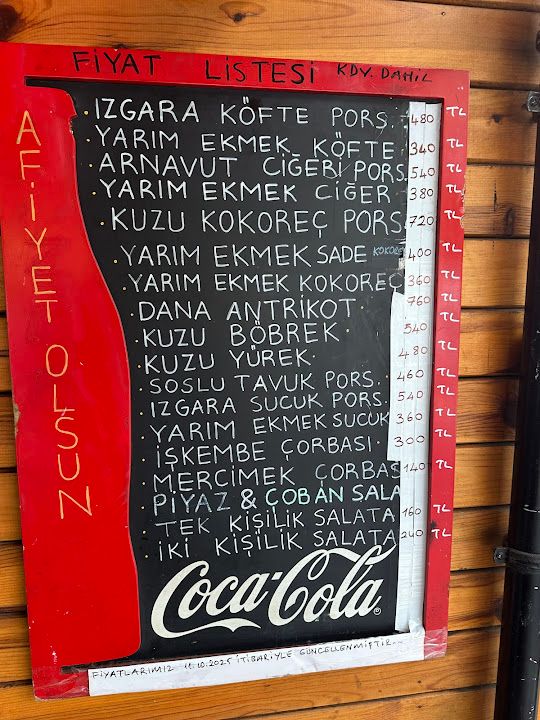 FİYAT LİSTESİ KDV. DAHİL
AFİYET OLSUN
·IZGARA KÖFTE PORS. 480 TL
·YARIM EKMEK KÖFTE 340 TL
·ARNAVUT CİĞERİ PORS. 540 TL
·YARIM EKMEK CİĞER 380 TL
·KUZU KOKOREÇ PORS. 720 TL
·YARIM EKMEK SADE KOKOREÇ 400 TL
·YARIM EKMEK KOKOREÇ 360 TL
·DANA ANTRİKOT· 760 TL
·KUZU BÖBREK· 540 TL
·KUZU YÜREK· 480 TL
·SOSLU TAVUK PORS. 460 TL
·IZGARA SUCUK PORS. 540 TL
·YARIM EKMEK SUCUK 360 TL
·İŞKEMBE ÇORBASI· 300 TL
·MERCİMEK ÇORBAS 140 TL
PİYAZ & ÇOBAN SALA
·TEK KİŞİLİK SALATA 160 TL
·İKİ KİŞİLİK SALATA 240 TL
Coca-Cola®
FİYATLARIMIZ 11.10.2025 İTİBARİYLE GÜNCELLENMİŞTİR...